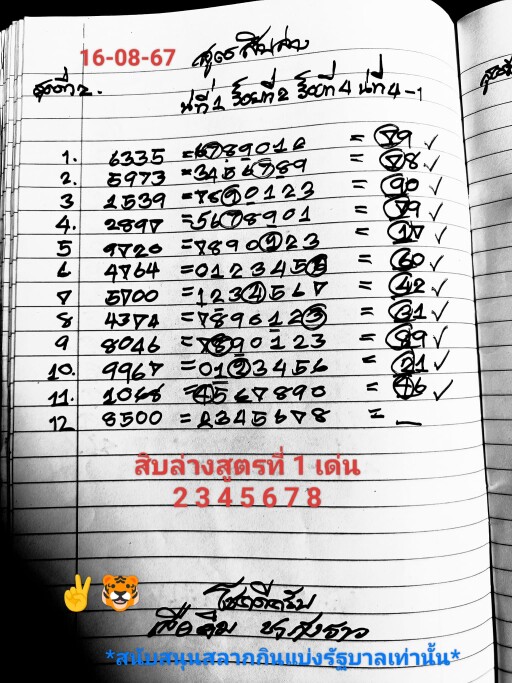 16-08-67 สูตรสิบล่าง
สูตรที่ 2.
1. 6335 = 6789012 = 79 ✓
2. 5973 = 3456789 = 78 ✓
3 2539 = 7890123 = 90 ✓
4. 2897 = 5678901 = 79 ✓
5 9720 = 7890123 = 17 ✓
6 4764 = 0123456 = 60 ✓
7 5700 = 1234567 = 42 ✓
8 4374 = 7890123 = 31 ✓
9 8046 = 7890123 = 89 ✓
10. 9967 = 0123456 = 21 ✓
11. = 4567890 = 46 ✓
12 8500 = 2345678 = _
สิบล่างสูตรที่ 1 เด่น
2 3 4 5 6 7 8
✌️🐯 โชคดีครับ
*สนับสนุนสลากกินแบ่งรัฐบาลเท่านั้น*